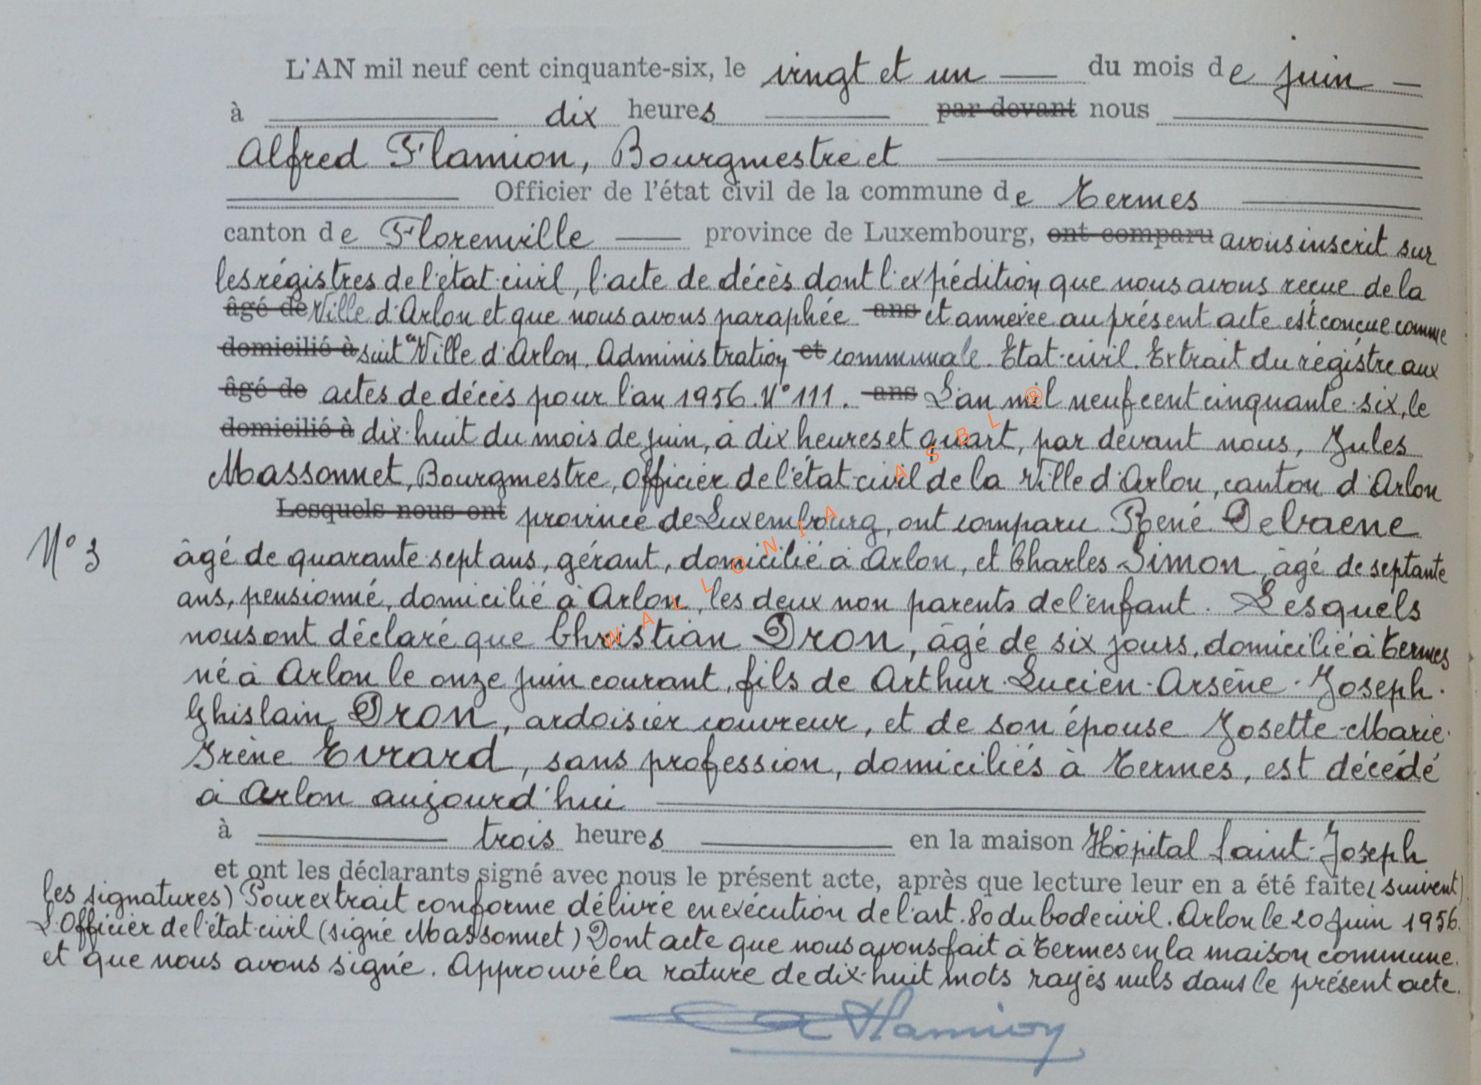 L'AN mil neuf cent cinquante-six, le vingt et un du mois de juin
à dix heures par devant nous
Alfred Flamion, Bourgmestre et
Officier de l'état civil de la commune de Termes
canton de Florenville province de Luxembourg, ont comparu avons inscrit sur
les régistres de l'état-civil, l'acte de décès dont l'expédition que nous avons reçue de la
âgé de Ville d'Arlon et que nous avons paraphée ans et annexée au présent acte est conçue comme
domicilié à suit "Ville d'Arlon. Administration et communale. Etat-civil. Extrait du régistre aux
âgé de actes de décès pour l'an 1956. N° 111. ans L'an mil neuf cent cinquante-six, le
domicilié à dix-huit du mois de juin, à dix heures et quart, par devant nous, Jules
Massonnet, Bourgmestre, Officier de l'état civil de la Ville d'Arlon, canton d'Arlon
Lesquels nous ont province de Luxembourg, ont comparu René Delvaene
N° 3 âgé de quarante-sept ans, gérant, domicilié à Arlon, et Charles Simon, âgé de septante
ans, pensionné, domicilié à Arlon, les deux non parents de l'enfant. Lesquels
nous ont déclaré que Christian Dron, âgé de six jours, domicilié à Termes
né à Arlon le onze juin courant, fils de Arthur-Lucien-Arsène-Joseph-
Ghislain Dron, ardoisier couvreur, et de son épouse Josette-Marie-
Irène Evrard, sans profession, domiciliés à Termes, est décédé
à Arlon aujourd'hui
à trois heures en la maison Hôpital Saint-Joseph
et ont les déclarants signé avec nous le présent acte, après que lecture leur en a été faite (suivent)
les signatures) Pour extrait conforme délivré en exécution de l'art. 80 du Code civil. Arlon le 20 Juin 1956.
L'Officier de l'état-civil (signé Massonnet) Dont acte que nous avons fait à Termes en la maison commune.
et que nous avons signé. Approuvé la rature de dix-huit mots rayés nuls dans le présent acte.
A Flamion
WALLONIA ASBL ©